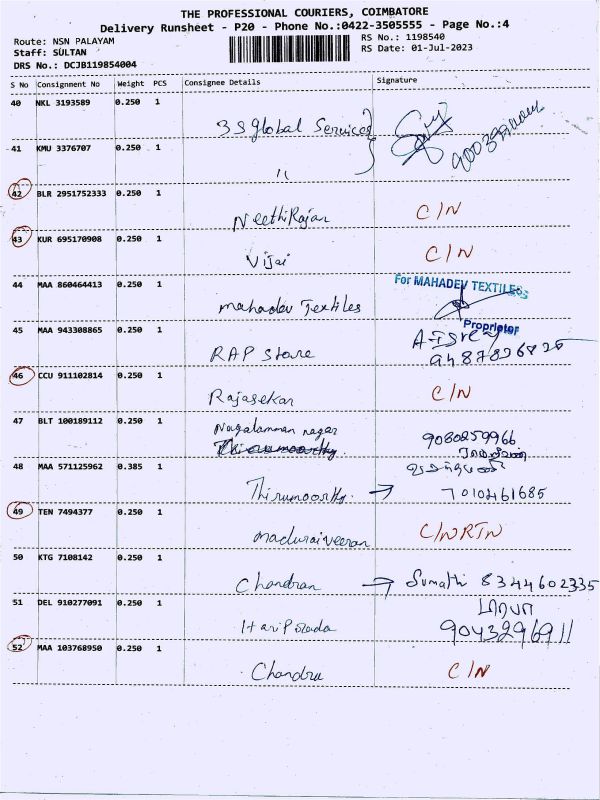 THE PROFESSIONAL COURIERS, COIMBATORE
Delivery Runsheet - P20 - Phone No.:0422-3505555 - Page No.:4
Route: NSN PALAYAM
RS No.: 1198540
Staff: SULTAN
RS Date: 01-Jul-2023
DRS No.: DCJB119854004
S No Consignment No Weight PCS Consignee Details Signature
40 NKL 3193589 0.250 1
3S global Services
41 KMU 3376707 0.250 1
"
42 BLR 2951752333 0.250 1
NeethiRajan C/N
43 KUR 695170908 0.250 1
Vijai C/N
44 MAA 860464413 0.250 1
For MAHADEV TEXTILES
mahadev Textiles
Proprietor
45 MAA 943308865 0.250 1
RAP Store 9487826826
46 CCU 911102814 0.250 1
Rajasekar C/N
47 BLT 100189112 0.250 1
Nagalamman nagar
9080259966
48 MAA 571125962 0.385 1
Thirumoorthy → 7010461685
49 TEN 7494377 0.250 1
maduraiveeran C/N RTN
50 KTG 7108142 0.250 1
Chandran → Sumathi 8344602335
51 DEL 910277091 0.250 1
HariPrada 9043296911
52 MAA 103768950 0.250 1
Chandru C/N